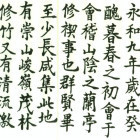 永和九年歲在癸
醜暮春之初會于
會稽山陰之蘭亭
修禊事也群賢畢
至少長咸集此地
有崇山峻嶺茂林
修竹又有清流激